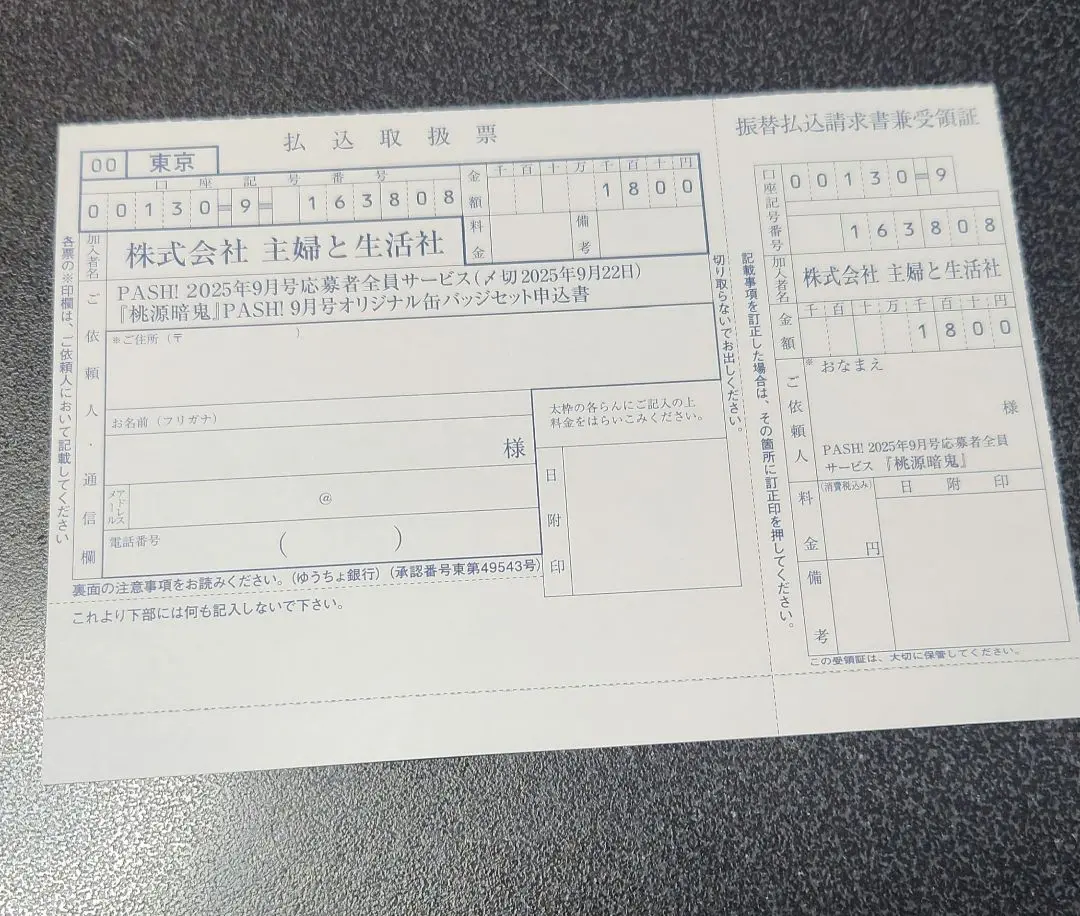 払込取扱票
00 東京
口座記号番号
00130=9= 163808
金額
千百十万千百十円
1800
料金
備考
加入者名
株式会社 主婦と生活社
PASH! 2025年9月号応募者全員サービス(〆切2025年9月22日)
『桃源暗鬼』PASH! 9月号オリジナル缶バッジセット申込書
ご依頼人・通信欄
※ご住所(〒 )
お名前(フリガナ)
様
メールアドレス
@
電話番号
( )
太枠の各らんにご記入の上
料金をはらいこみください。
日附印
裏面の注意事項をお読みください。(ゆうちょ銀行)(承認番号東第49543号)
これより下部には何も記入しないで下さい。
各票の※印欄は、ご依頼人において記載してください
切り取らないでお出しください。
記載事項を訂正した場合は、その箇所に訂正印を押してください。
振替払込請求書兼受領証
口座記号番号
00130=9
163808
加入者名
株式会社 主婦と生活社
金額
千百十万千百十円
1800
ご依頼人
※
おなまえ
様
PASH! 2025年9月号応募者全員
サービス 『桃源暗鬼』
料金
(消費税込み)
円
日附印
備考
この受領証は、大切に保管してください。